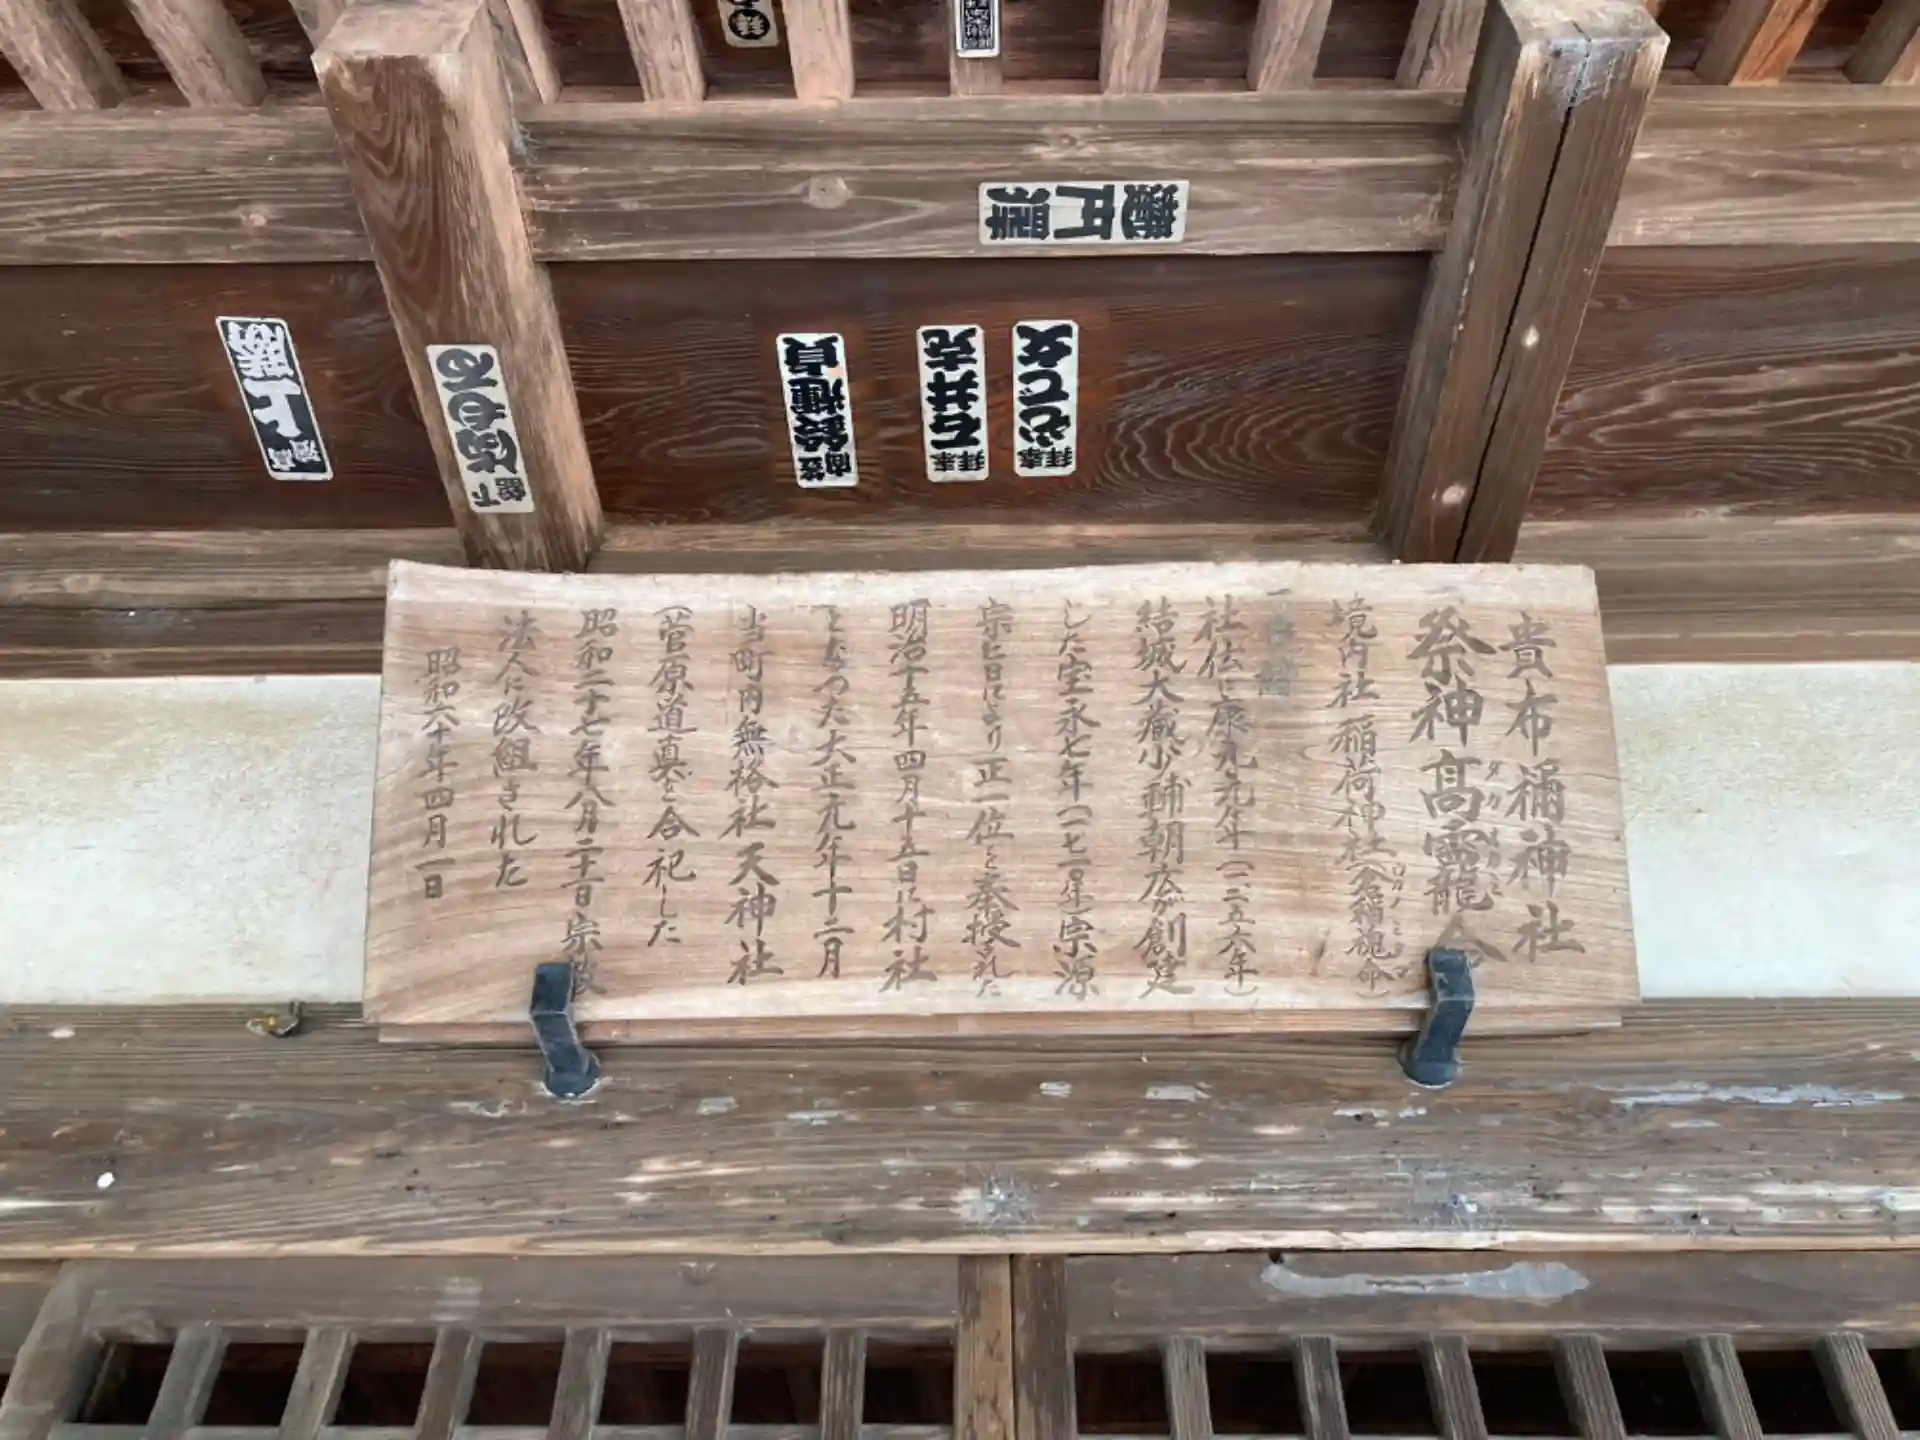 貴布禰神社
祭神高龗命
タカオカミ
境内社 稲荷神社(倉稲魂命)
社伝に康元元年(一二五六年)
結城大蔵少輔朝広が創建
した宝永七年(一七一〇年)宗源
宗旨により正一位を奉授された
明治十五年四月十五日に村社
となつた大正元年十二月
当町内無格社天神社
(菅原道真)を合祀した
昭和二十七年八月二十一日宗教
法人に改組された
昭和六十年四月一日
石井克
拝奉
拝奉
鈴輝貞